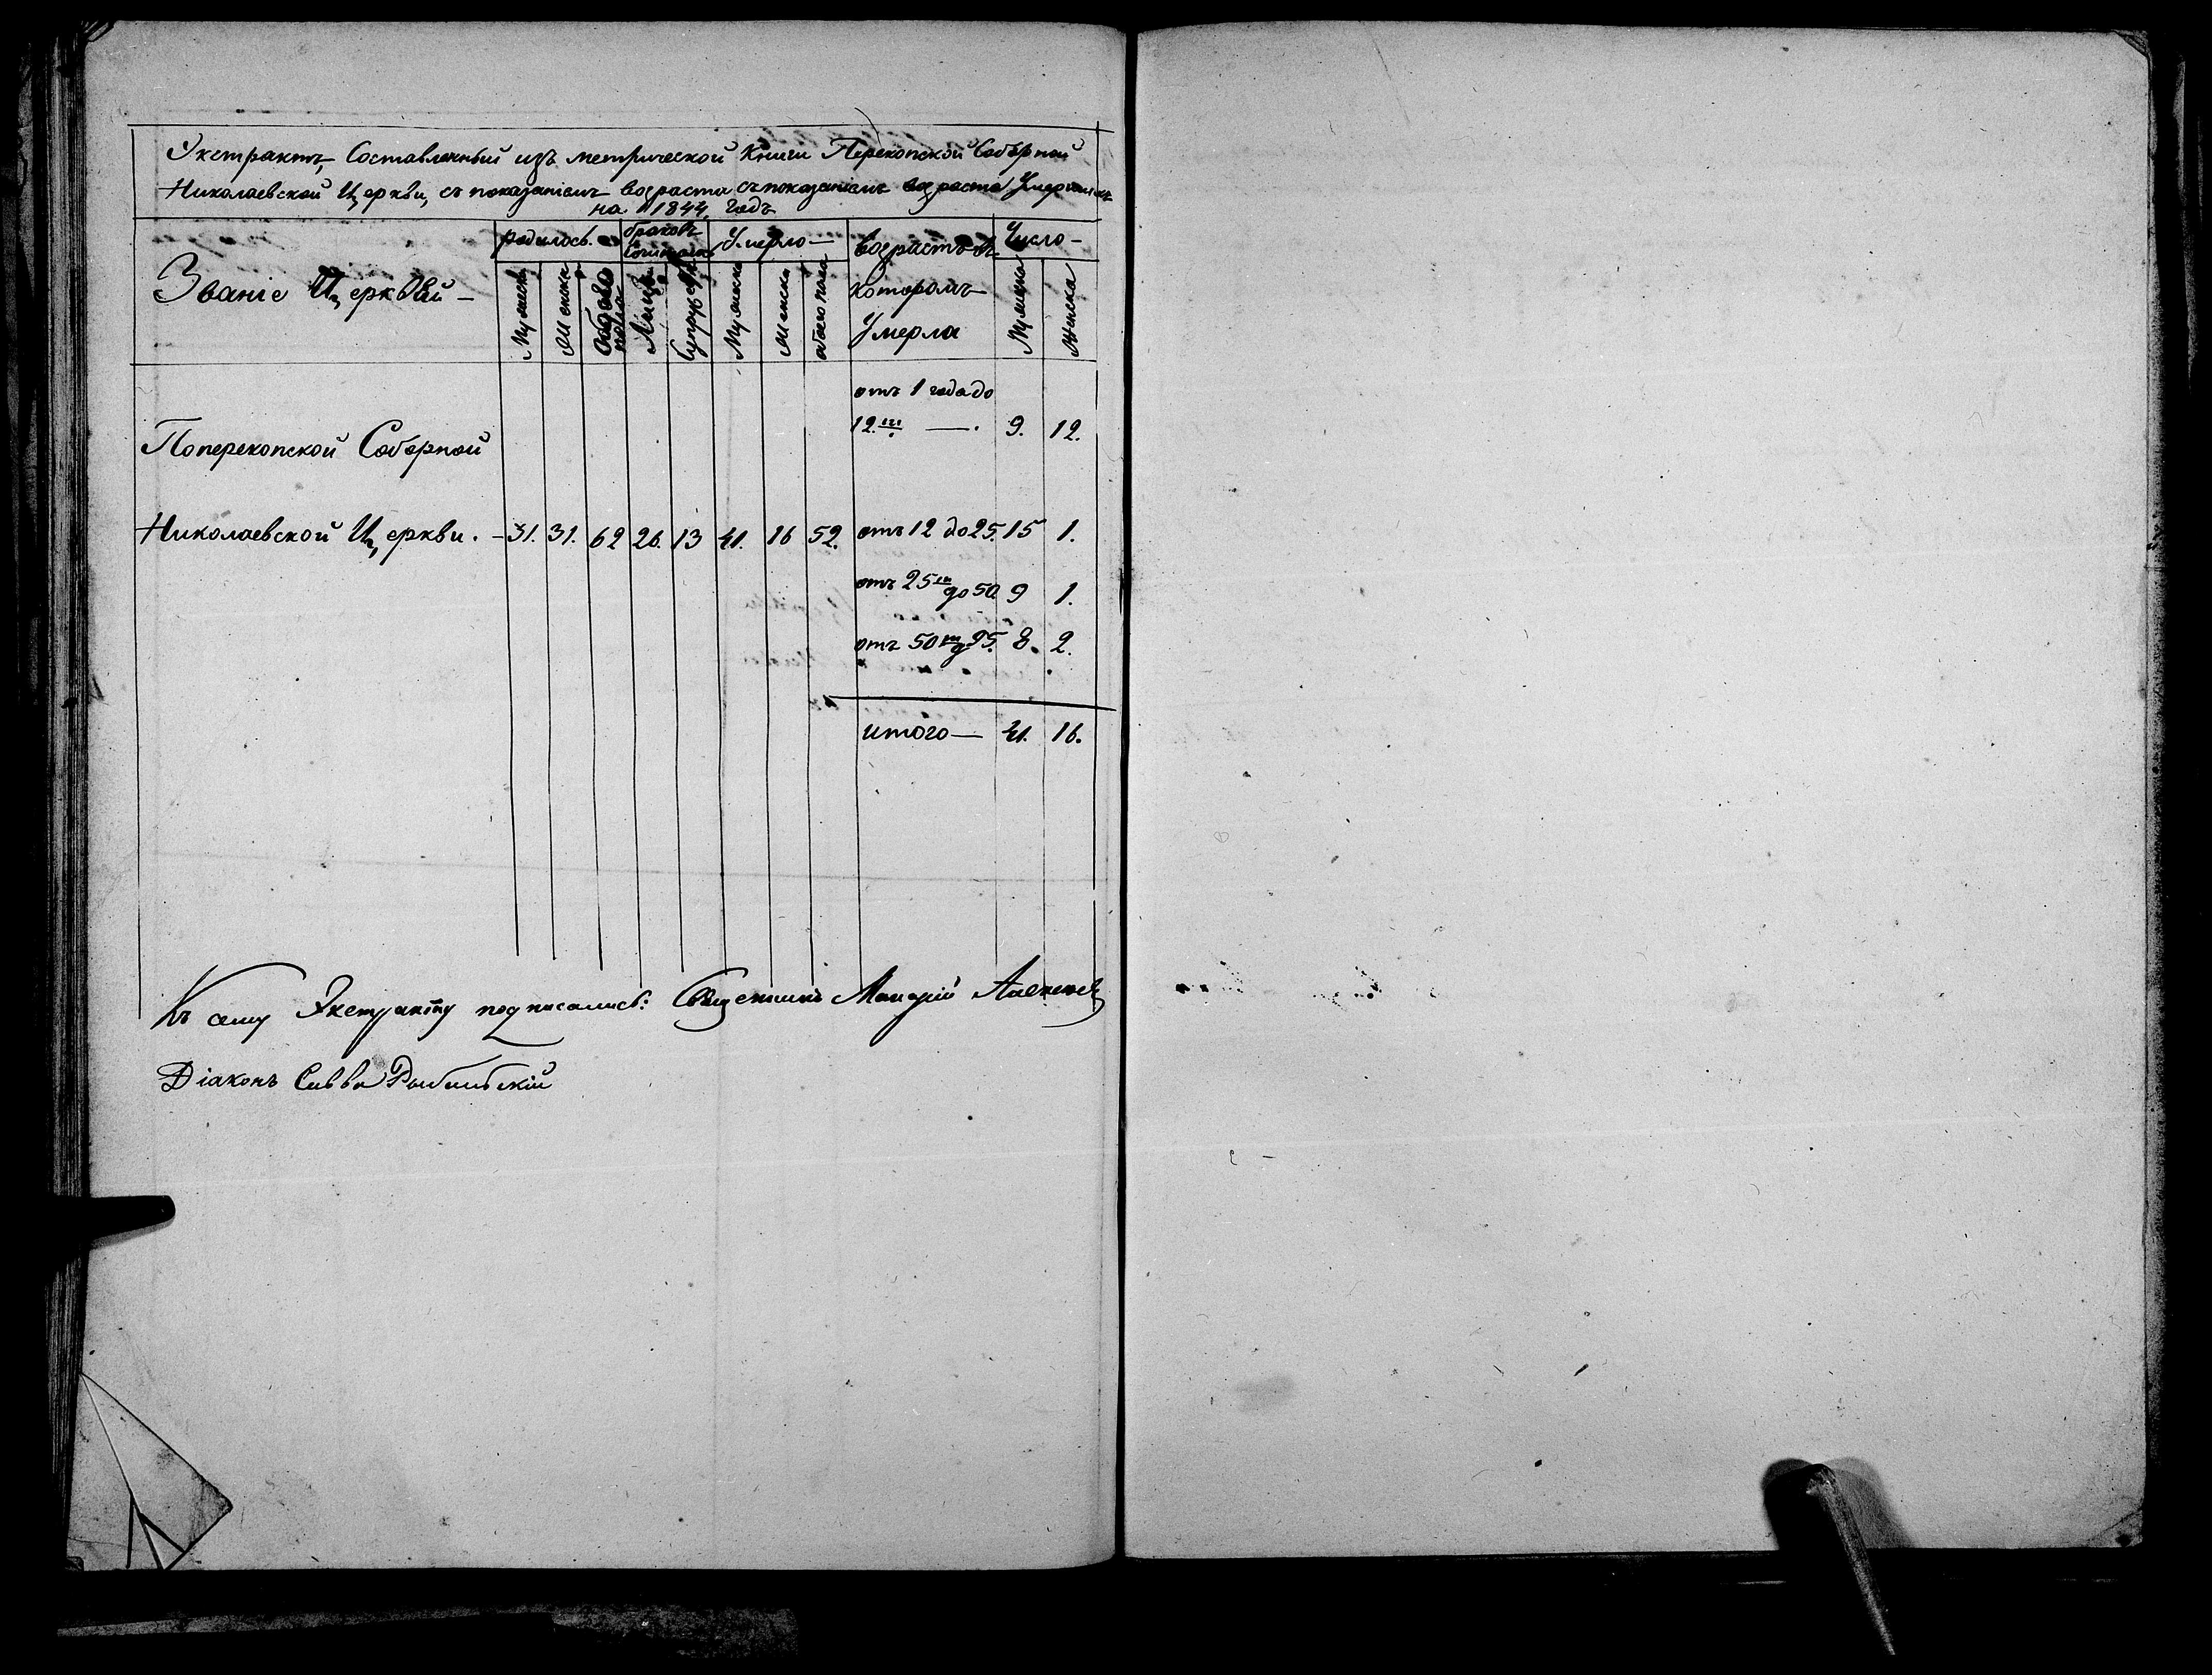 Экстрактъ, Составленный изъ метрической Книги Перекопской Соборной
Николаевской Церкви, съ показаніемъ возраста съ показаніемъ возраста Умершихъ
на 1844, годъ
Званіе Церквей —
родилось.
браковъ
Умерло —
возрастъ въ
Которомъ
Умерла
Число —
Мужеска
Женска
Обоего пола
Лицъ
Супружествъ
Мужеска
Женска
обоего пола
Мужеска
Женска
отъ 1 года до
12.ти — . 9. 12.
Поперекопской Соборной
Николаевской Церкви. — 31. 31. 62 26. 13 41. 16 52. отъ 12 до 25. 15 1.
отъ 25ти до 50 9 1.
отъ 50ти д 95. 8. 2.
итого — 41. 16.
Къ сему Экстракту подписались: Священникъ Макарій
Діаконъ Савва